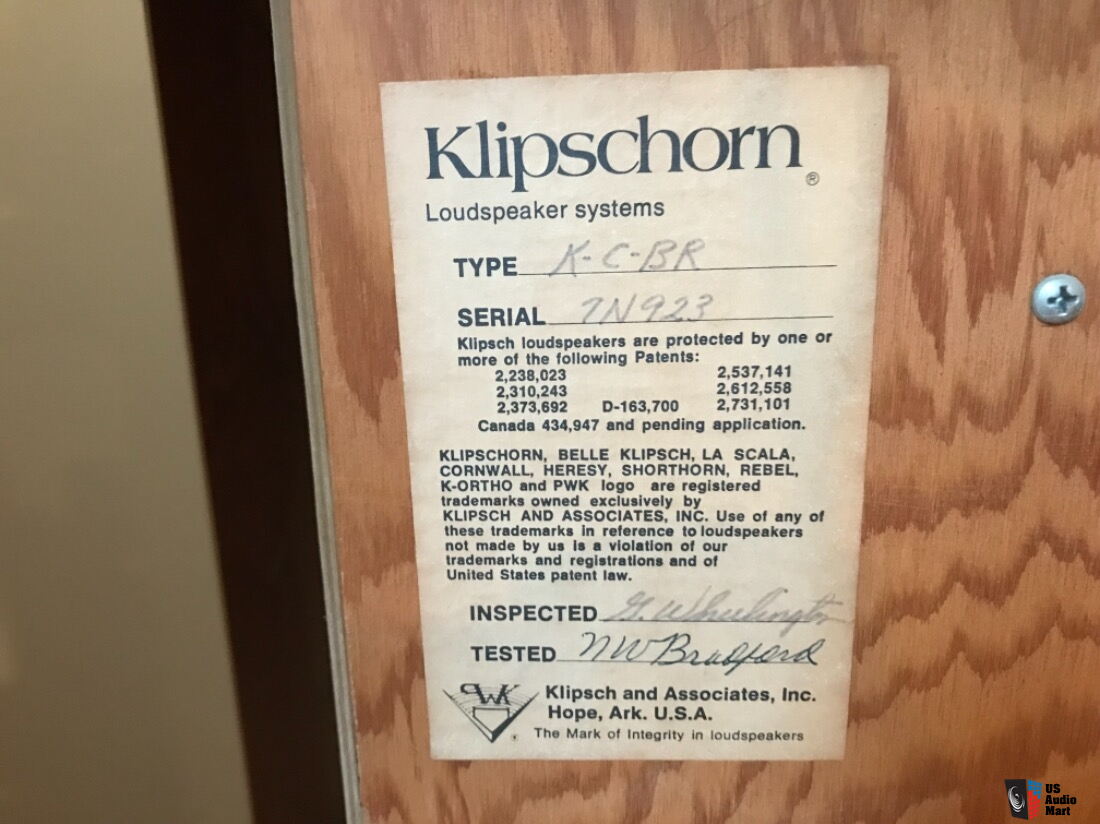 Klipschorn ®
Loudspeaker systems
TYPE K-C-BR
SERIAL 7N923
Klipsch loudspeakers are protected by one or
more of the following Patents:
2,238,023 2,537,141
2,310,243 2,612,558
2,373,692 D-163,700 2,731,101
Canada 434,947 and pending application.
KLIPSCHORN, BELLE KLIPSCH, LA SCALA,
CORNWALL, HERESY, SHORTHORN, REBEL,
K-ORTHO and PWK logo are registered
trademarks owned exclusively by
KLIPSCH AND ASSOCIATES, INC. Use of any of
these trademarks in reference to loudspeakers
not made by us is a violation of our
trademarks and registrations and of
United States patent law.
INSPECTED G. Whelington
TESTED NW Bradford
PWK Klipsch and Associates, Inc.
Hope, Ark. U.S.A.
The Mark of Integrity in loudspeakers
US
Audio
Mart